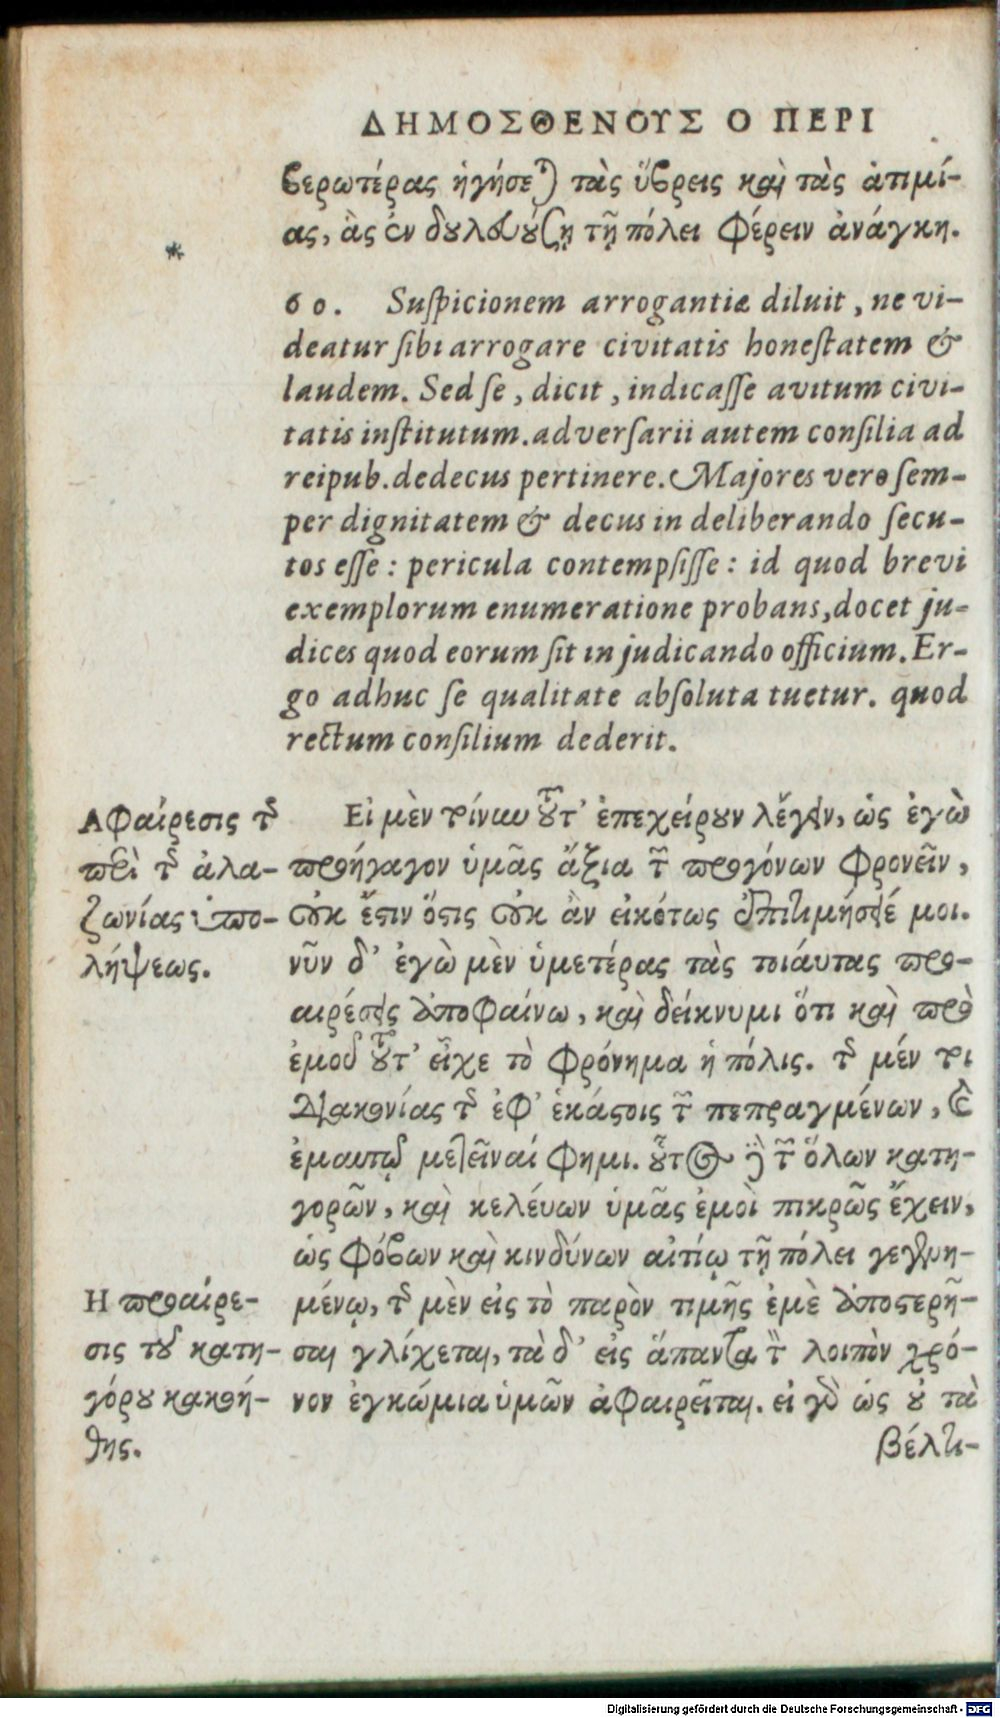 ΔΗΜΟΣΘΕΝΟΥΣ Ο ΠΕΡΙ
βερωτέρας ἡγήσεται τὰς ὕβρεις καὶ τὰς ἀτιμί-
ας, ἃς ἐν δουλευούσῃ τῇ πόλει φέρειν ἀνάγκη.
*
60. Suspicionem arrogantiæ diluit, ne vi-
deatur sibi arrogare civitatis honestatem &
laudem. Sed se, dicit, indicasse avitum civi-
tatis institutum. adversarii autem consilia ad
reipub. dedecus pertinere. Majores vero sem-
per dignitatem & decus in deliberando secu-
tos esse: pericula contempsisse: id quod brevi
exemplorum enumeratione probans, docet ju-
dices quod eorum sit in judicando officium. Er-
go adhuc se qualitate absoluta tuetur. quod
rectum consilium dederit.
Ἀφαίρεσις τῆς
περὶ τῆς ἀλα-
ζωνίας ὑπο-
λήψεως.
Εἰ μὲν τοίνυν τοῦτ' ἐπεχείρουν λέγειν, ὡς ἐγὼ
προήγαγον ὑμᾶς ἄξια τῶν προγόνων φρονεῖν,
οὐκ ἔστιν ὅστις οὐκ ἂν εἰκότως ἐπιτιμήσειέ μοι.
νῦν δ' ἐγὼ μὲν ὑμετέρας τὰς τοιαύτας προ-
αιρέσεις ἀποφαίνω, καὶ δείκνυμι ὅτι καὶ πρὸ
ἐμοῦ τοῦτ' εἶχε τὸ φρόνημα ἡ πόλις. τῆς μέν τοι
διακονίας τῆς ἐφ' ἑκάστοις τῶν πεπραγμένων, καὶ
ἐμαυτῷ μετεῖναί φημι. οὗτος δὲ τῶν ὅλων κατη-
γορῶν, καὶ κελεύων ὑμᾶς ἐμοὶ πικρῶς ἔχειν,
ὡς φόβων καὶ κινδύνων αἰτίῳ τῇ πόλει γεγενη-
μένῳ, τῆς μὲν εἰς τὸ παρὸν τιμῆς ἐμὲ ἀποστερῆ-
σαι γλίχεται, τὰ δ' εἰς ἅπαντα τὸν λοιπὸν χρό-
νον ἐγκώμια ὑμῶν ἀφαιρεῖται. εἰ γὰρ ὡς οὐ τὰ
βέλτι-
Ἡ προαίρε-
σις τοῦ κατη-
γόρου κακοή-
θης.
Digitalisierung gefördert durch die Deutsche Forschungsgemeinschaft - DFG